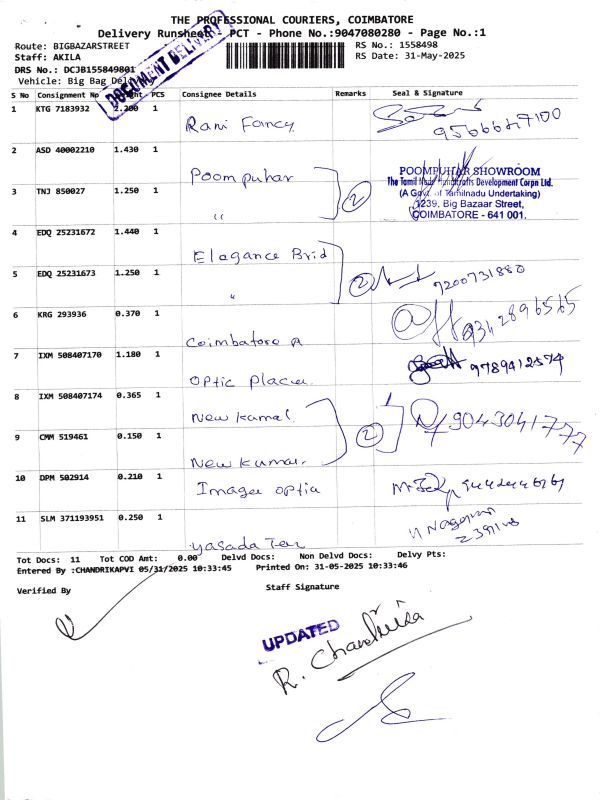 THE PROFESSIONAL COURIERS, COIMBATORE
Delivery Runsheet PCT - Phone No.:9047080280 - Page No.:1
Route: BIGBAZARSTREET
RS No.: 1558498
Staff: AKILA
RS Date: 31-May-2025
DRS No.: DCJB155849801
Vehicle: Big Bag
DOCUMENT DELIVERY
S No Consignment No PCS Consignee Details Remarks Seal & Signature
1 KTG 7183932 2.200 1 Rani Fancy
2 ASD 40002210 1.430 1 Poompuhar
POOMPUHAR SHOWROOM
The Tamil Nadu Handicrafts Development Corpn Ltd.
(A Govt. of Tamilnadu Undertaking)
1239, Big Bazaar Street,
COIMBATORE - 641 001.
3 TNJ 850027 1.250 1 " 2
4 EDQ 25231672 1.440 1 Elagance Brid
5 EDQ 25231673 1.250 1 " 2 7200731880
6 KRG 293936 0.370 1 Coimbatore A 9342896565
7 IXM 508407170 1.180 1 Optic placie 9789412574
8 IXM 508407174 0.365 1 New kamal
9 CMM 519461 0.150 1 New kumar 2 9043041777
10 DPM 502914 0.210 1 Image optia
11 SLM 371193951 0.250 1 yasada Tex
Tot Docs: 11 Tot COD Amt: 0.00 Delvd Docs: Non Delvd Docs: Delvy Pts:
Entered By :CHANDRIKAPVI 05/31/2025 10:33:45 Printed On: 31-05-2025 10:33:46
Verified By
Staff Signature
UPDATED
R. Chandrika